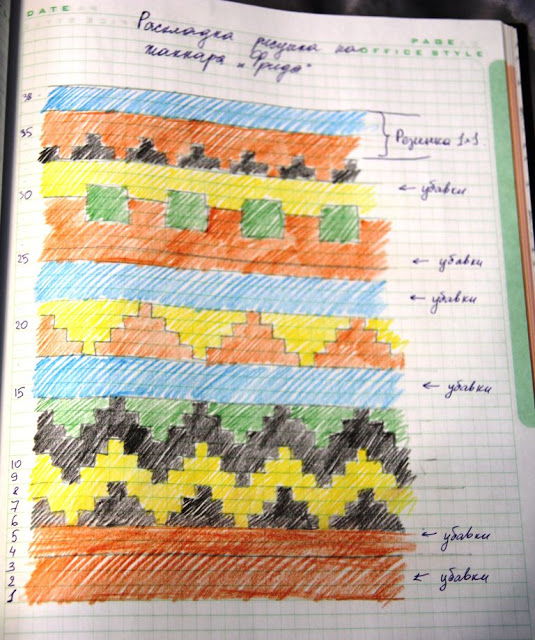 DATE
PAGE
OFFICE STYLE
Раскладка рисунка
жаккара "Фрида"
38
35
Резинка 1×1
30
← убавки
25
← убавки
← убавки
20
15
← убавки
10
9
8
7
6
5
← убавки
4
3
2
← убавки
1